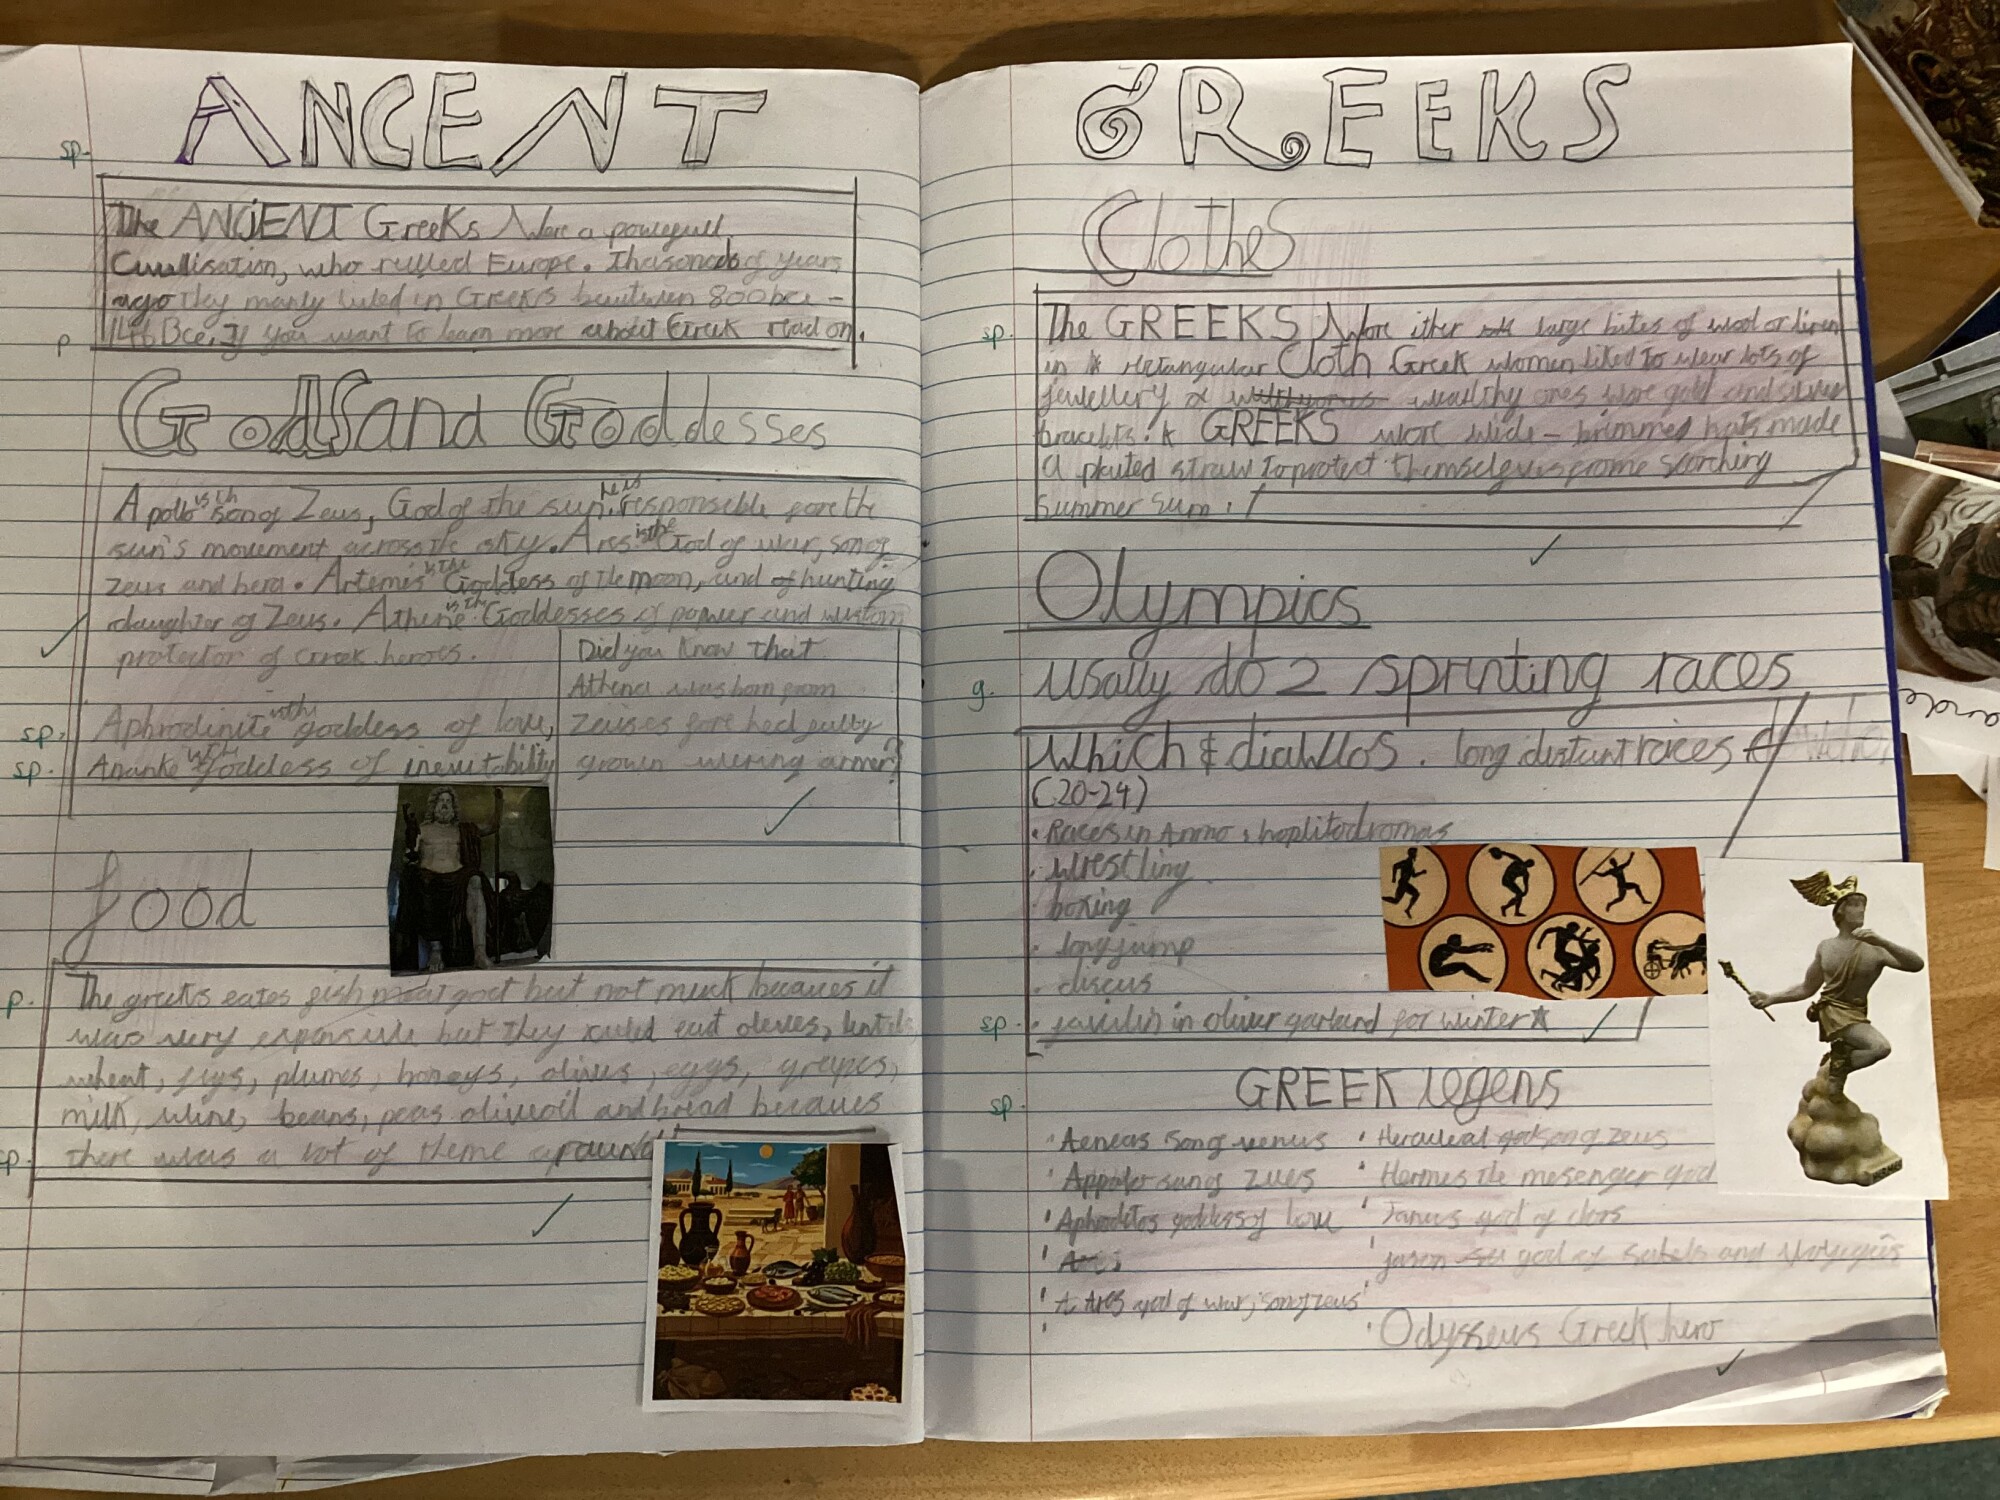 ANCENT
sp.
The ANCIENT Greeks Were a powefull
Civallisation, who rulled Europe. Thasonds of years
ago They manly lived in Greeks bewtwen 800bce -
146 Bce, If you want to learn more about Greek read on.
p
Gods and Goddesses
Apollo is th son of Zeus, God of the sun. he is responseble fore the
sun's movement across the sky. Ares is the God of war, son of
Zeus and hera. Artemis is the Goddess of the moon, and of hunting
daughter of Zeus. Athene is the Goddesses of power and wistom
protector of Greek heroes.
sp. Aphrodinite is the goddess of love,
sp. Ananke is th goddess of inevitability
Did you know that
Athena was born from
Zeuses fore hed fully
grown wering armer?
food
p. The greeks eates fish meat goct but not much becaues it
was very expensive but they could eat oleves, lentils
wheat, figs, plumes, honeys, olives, eggs, greypes,
milk, wine, beans, peas olive oil and bread becaues
sp. there was a lot of theme around
GREEKS
Clothes
sp. The GREEKS Wore ither large bites of wool or linen
in rectangular Cloth Greek women liked to wear lots of
jewellery & wealthy ones wore gold and silver
bracelets. GREEKS wore wide - brimmed hats made
a plated straw to protect themselves frome scorching
summer sum.
Olympics
g. usally do 2 sprinting races
Which & diawllos. long distunt races
(20-24)
· Races in Armo, hoplitodromas
· Wrestling
· boxing
· long jump
· discus
sp. · javilin in oliver garland for winter
GREEK legens
sp.
· Aeneas song venus
· Appolo sun of Zues
· Aphroditos goddes of love
· Ares god of war, son of zeus
· Herculeal god song zeus
· Hermes the mesenger god
· Janus god of dors
· jason
· Odysseus Greek hero